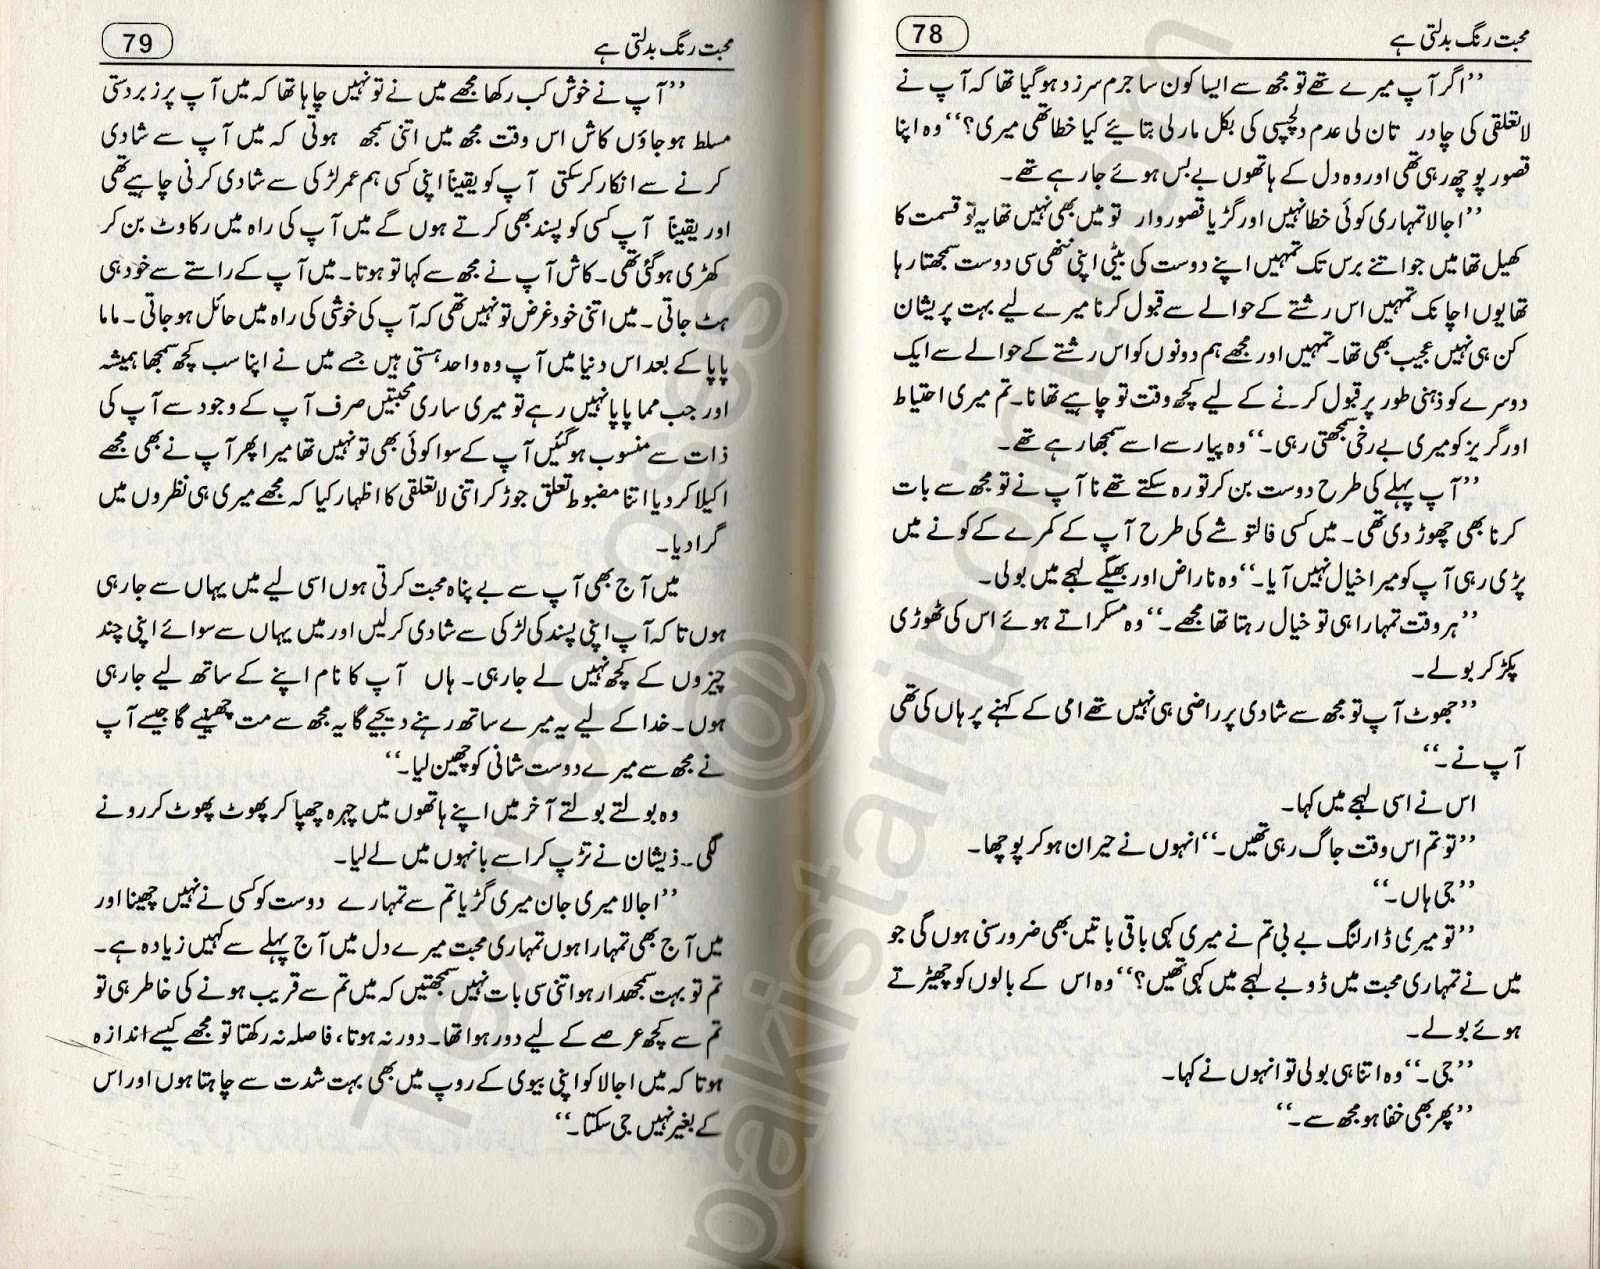 محبت رنگ بدلتی ہے
78
’’اگر آپ میرے تھے تو مجھ سے ایسا کون سا جرم سرزد ہو گیا تھا کہ آپ نے
لاتعلقی کی چادر تان لی عدم دلچسپی کی بکل مار لی بتائیے کیا خطا تھی میری؟‘‘ وہ اپنا
قصور پوچھ رہی تھی اور وہ دل کے ہاتھوں بے بس ہوئے جا رہے تھے۔
’’اجالا تمہاری کوئی خطا نہیں اور گڑیا قصوروار تو میں بھی نہیں تھا یہ تو قسمت کا
کھیل تھا میں جو اتنے برس تک تمہیں اپنے دوست کی بیٹی اپنی ننھی سی دوست سمجھتا رہا
تھا یوں اچانک تمہیں اس رشتے کے حوالے سے قبول کرنا میرے لیے بہت پریشان
کن ہی نہیں عجیب بھی تھا۔ تمہیں اور مجھے ہم دونوں کو اس رشتے کے حوالے سے ایک
دوسرے کو ذہنی طور پر قبول کرنے کے لیے کچھ وقت تو چاہیے تھا نا۔ تم میری احتیاط
اور گریز کو میری بے رخی سمجھتی رہی۔‘‘ وہ پیار سے اسے سمجھا رہے تھے۔
’’آپ پہلے کی طرح دوست بن کر تو رہ سکتے تھے نا آپ نے تو مجھ سے بات
کرنا بھی چھوڑ دی تھی۔ میں کسی فالتو شے کی طرح آپ کے کمرے کے کونے میں
پڑی رہی آپ کو میرا خیال نہیں آیا۔‘‘ وہ ناراض اور بھیگے لہجے میں بولی۔
’’ہر وقت تمہارا ہی تو خیال رہتا تھا مجھے۔‘‘ وہ مسکراتے ہوئے اس کی ٹھوڑی
پکڑ کر بولے۔
’’جھوٹ آپ تو مجھ سے شادی پر راضی ہی نہیں تھے امی کے کہنے پر ہاں کی تھی
آپ نے۔‘‘
اس نے اسی لہجے میں کہا۔
’’تو تم اس وقت جاگ رہی تھیں۔‘‘ انہوں نے حیران ہو کر پوچھا۔
’’جی ہاں۔‘‘
’’تو میری ڈارلنگ بے بی تم نے میری کہی باقی باتیں بھی ضرور سنی ہوں گی جو
میں نے تمہاری محبت میں ڈوبے لہجے میں کہی تھیں؟‘‘ وہ اس کے بالوں کو چھیڑتے
ہوئے بولے۔
’’جی۔‘‘ وہ اتنا ہی بولی تو انہوں نے کہا۔
’’پھر بھی خفا ہو مجھ سے۔‘‘
محبت رنگ بدلتی ہے
79
’’آپ نے خوش کب رکھا مجھے میں نے تو نہیں چاہا تھا کہ میں آپ پر زبردستی
مسلط ہو جاؤں کاش اس وقت مجھ میں اتنی سمجھ ہوتی کہ میں آپ سے شادی
کرنے سے انکار کر سکتی آپ کو یقیناً اپنی کسی ہم عمر لڑکی سے شادی کرنی چاہیے تھی
اور یقیناً آپ کسی کو پسند بھی کرتے ہوں گے میں آپ کی راہ میں رکاوٹ بن کر
کھڑی ہو گئی تھی۔ کاش آپ نے مجھ سے کہا تو ہوتا۔ میں آپ کے راستے سے خود ہی
ہٹ جاتی۔ میں اتنی خود غرض تو نہیں تھی کہ آپ کی خوشی کی راہ میں حائل ہو جاتی۔ ماما
پاپا کے بعد اس دنیا میں آپ وہ واحد ہستی ہیں جسے میں نے اپنا سب کچھ سمجھا ہمیشہ
اور جب مما پاپا نہیں رہے تو میری ساری محبتیں صرف آپ کے وجود سے آپ کی
ذات سے منسوب ہو گئیں آپ کے سوا کوئی بھی تو نہیں تھا میرا پھر آپ نے بھی مجھے
اکیلا کر دیا اتنا مضبوط تعلق جوڑ کر اتنی لاتعلقی کا اظہار کیا کہ مجھے میری ہی نظروں میں
گرا دیا۔
میں آج بھی آپ سے بے پناہ محبت کرتی ہوں اسی لیے میں یہاں سے جا رہی
ہوں تاکہ آپ اپنی پسند کی لڑکی سے شادی کر لیں اور میں یہاں سے سوائے اپنی چند
چیزوں کے کچھ نہیں لے جا رہی۔ ہاں آپ کا نام اپنے کے ساتھ لیے جا رہی
ہوں۔ خدا کے لیے یہ میرے ساتھ رہنے دیجیے گا یہ مجھ سے مت چھینیے گا جیسے آپ
نے مجھ سے میرے دوست شانی کو چھین لیا۔‘‘
وہ بولتے بولتے آخر میں اپنے ہاتھوں میں چہرہ چھپا کر پھوٹ پھوٹ کر رونے
لگی۔ ذیشان نے تڑپ کر اسے بانہوں میں لے لیا۔
’’اجالا میری جان میری گڑیا تم سے تمہارے دوست کو کسی نے نہیں چھینا اور
میں آج بھی تمہارا ہوں تمہاری محبت میرے دل میں آج پہلے سے کہیں زیادہ ہے۔
تم تو بہت سمجھدار ہو اتنی سی بات نہیں سمجھتیں کہ میں تم سے قریب ہونے کی خاطر ہی تو
تم سے کچھ عرصے کے لیے دور ہوا تھا۔ دور نہ ہوتا، فاصلہ نہ رکھتا تو مجھے کیسے اندازہ
ہوتا کہ میں اجالا کو اپنی بیوی کے روپ میں بھی بہت شدت سے چاہتا ہوں اور اس
کے بغیر نہیں جی سکتا۔‘‘